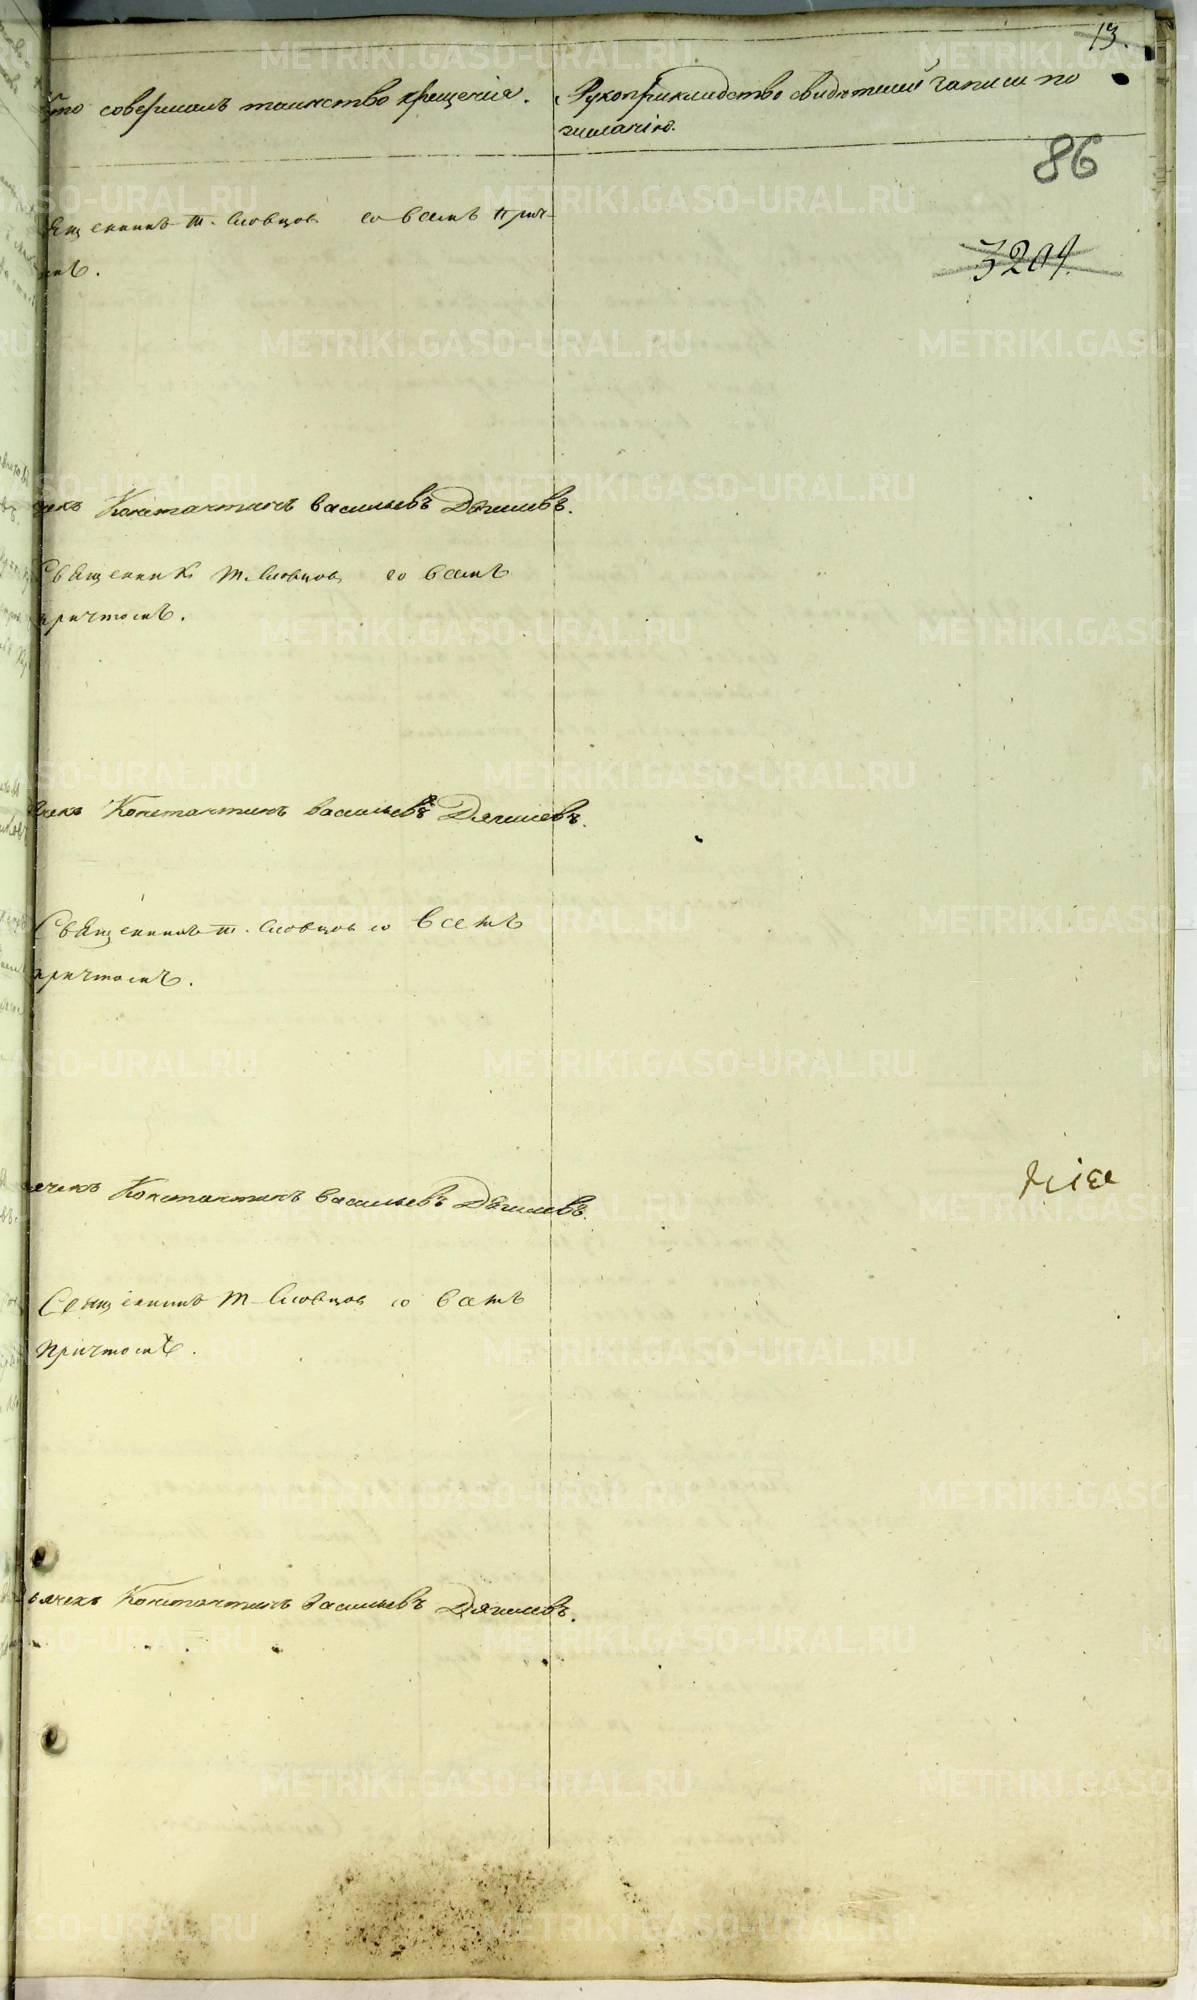 13.
то совершалъ таинство крещенія.
Рукоприкладство свидѣтелей записи по
желанію.
86
3204
ященникъ т. Словцовъ со всемъ прич-
мъ.
чекъ Константинъ Васильевъ Дягилевъ.
Священникъ т. Словцовъ со всемъ
причтомъ.
ячекъ Константинъ Васильевъ Дягилевъ.
Священникъ т. Словцовъ со всемъ
причтомъ.
ячекъ Константинъ Васильевъ Дягилевъ.
Священникъ т. Словцовъ со всемъ
причтомъ.
ьячекъ Константинъ Васильевъ Дягилевъ.
METRIKI.GASO-URAL.RU